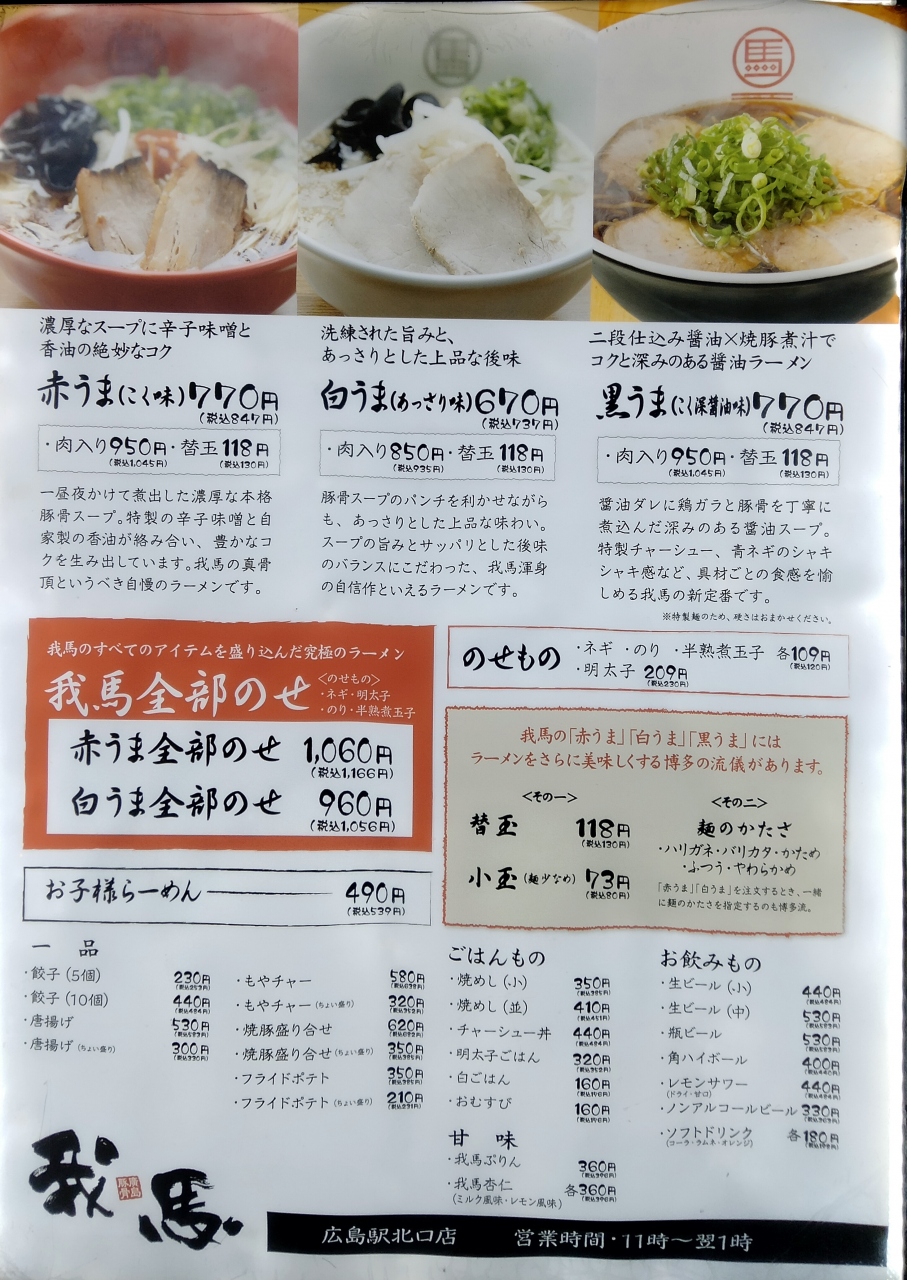 馬
濃厚なスープに辛子味噌と
香油の絶妙なコク
赤うま(こく味)770円
(税込847円)
・肉入り950円・替玉118円
(税込1,045円) (税込130円)
一昼夜かけて煮出した濃厚な本格
豚骨スープ。特製の辛子味噌と自
家製の香油が絡み合い、豊かなコ
クを生み出しています。我馬の真骨
頂というべき自慢のラーメンです。
洗練された旨みと、
あっさりとした上品な後味
白うま(あっさり味)670円
(税込737円)
・肉入り850円・替玉118円
(税込935円) (税込130円)
豚骨スープのパンチを利かせながら
も、あっさりとした上品な味わい。
スープの旨みとサッパリとした後味
のバランスにこだわった、我馬渾身
の自信作といえるラーメンです。
二段仕込み醤油×焼豚煮汁で
コクと深みのある醤油ラーメン
黒うま(こく深醤油味)770円
(税込847円)
・肉入り950円・替玉118円
(税込1,045円) (税込130円)
醤油ダレに鶏ガラと豚骨を丁寧に
煮込んだ深みのある醤油スープ。
特製チャーシュー、青ネギのシャキ
シャキ感など、具材ごとの食感を愉
しめる我馬の新定番です。
※特製麺のため、硬さはおまかせください。
我馬のすべてのアイテムを盛り込んだ究極のラーメン
我馬全部のせ
<のせもの>
・ネギ・明太子
・のり・半熟煮玉子
赤うま全部のせ 1,060円
(税込1,166円)
白うま全部のせ 960円
(税込1,056円)
お子様らーめん 490円
(税込539円)
のせもの
・ネギ ・のり ・半熟煮玉子 各109円
(税込120円)
・明太子 209円
(税込230円)
我馬の「赤うま」「白うま」「黒うま」には
ラーメンをさらに美味しくする博多の流儀があります。
<その一>
替玉 118円
(税込130円)
小玉(麺少なめ) 73円
(税込80円)
<その二>
麺のかたさ
・ハリガネ・バリカタ・かため
・ふつう・やわらかめ
「赤うま」「白うま」を注文するとき、一緒
に麺のかたさを指定するのも博多流。
一品
・餃子(5個) 230円
(税込253円)
・餃子(10個) 440円
(税込484円)
・唐揚げ 530円
(税込583円)
・唐揚げ(ちょい盛り) 300円
(税込330円)
・もやチャー 580円
(税込638円)
・もやチャー(ちょい盛り) 320円
(税込352円)
・焼豚盛り合せ 620円
(税込682円)
・焼豚盛り合せ(ちょい盛り) 350円
(税込385円)
・フライドポテト 350円
(税込385円)
・フライドポテト(ちょい盛り) 210円
(税込231円)
ごはんもの
・焼めし(小) 350円
(税込385円)
・焼めし(並) 410円
(税込451円)
・チャーシュー丼 440円
(税込484円)
・明太子ごはん 320円
(税込352円)
・白ごはん 160円
(税込176円)
・おむすび 160円
(税込176円)
甘味
・我馬ぷりん 360円
(税込396円)
・我馬杏仁 各360円
(ミルク風味・レモン風味) (税込396円)
お飲みもの
・生ビール(小) 440円
(税込484円)
・生ビール(中) 530円
(税込583円)
・瓶ビール 530円
(税込583円)
・角ハイボール 400円
(税込440円)
・レモンサワー 440円
(ドライ・甘口) (税込484円)
・ノンアルコールビール 330円
(税込363円)
・ソフトドリンク 各180円
(コーラ・ラムネ・オレンジ) (税込198円)
我馬
廣島
豚骨
広島駅北口店 営業時間・11時〜翌1時